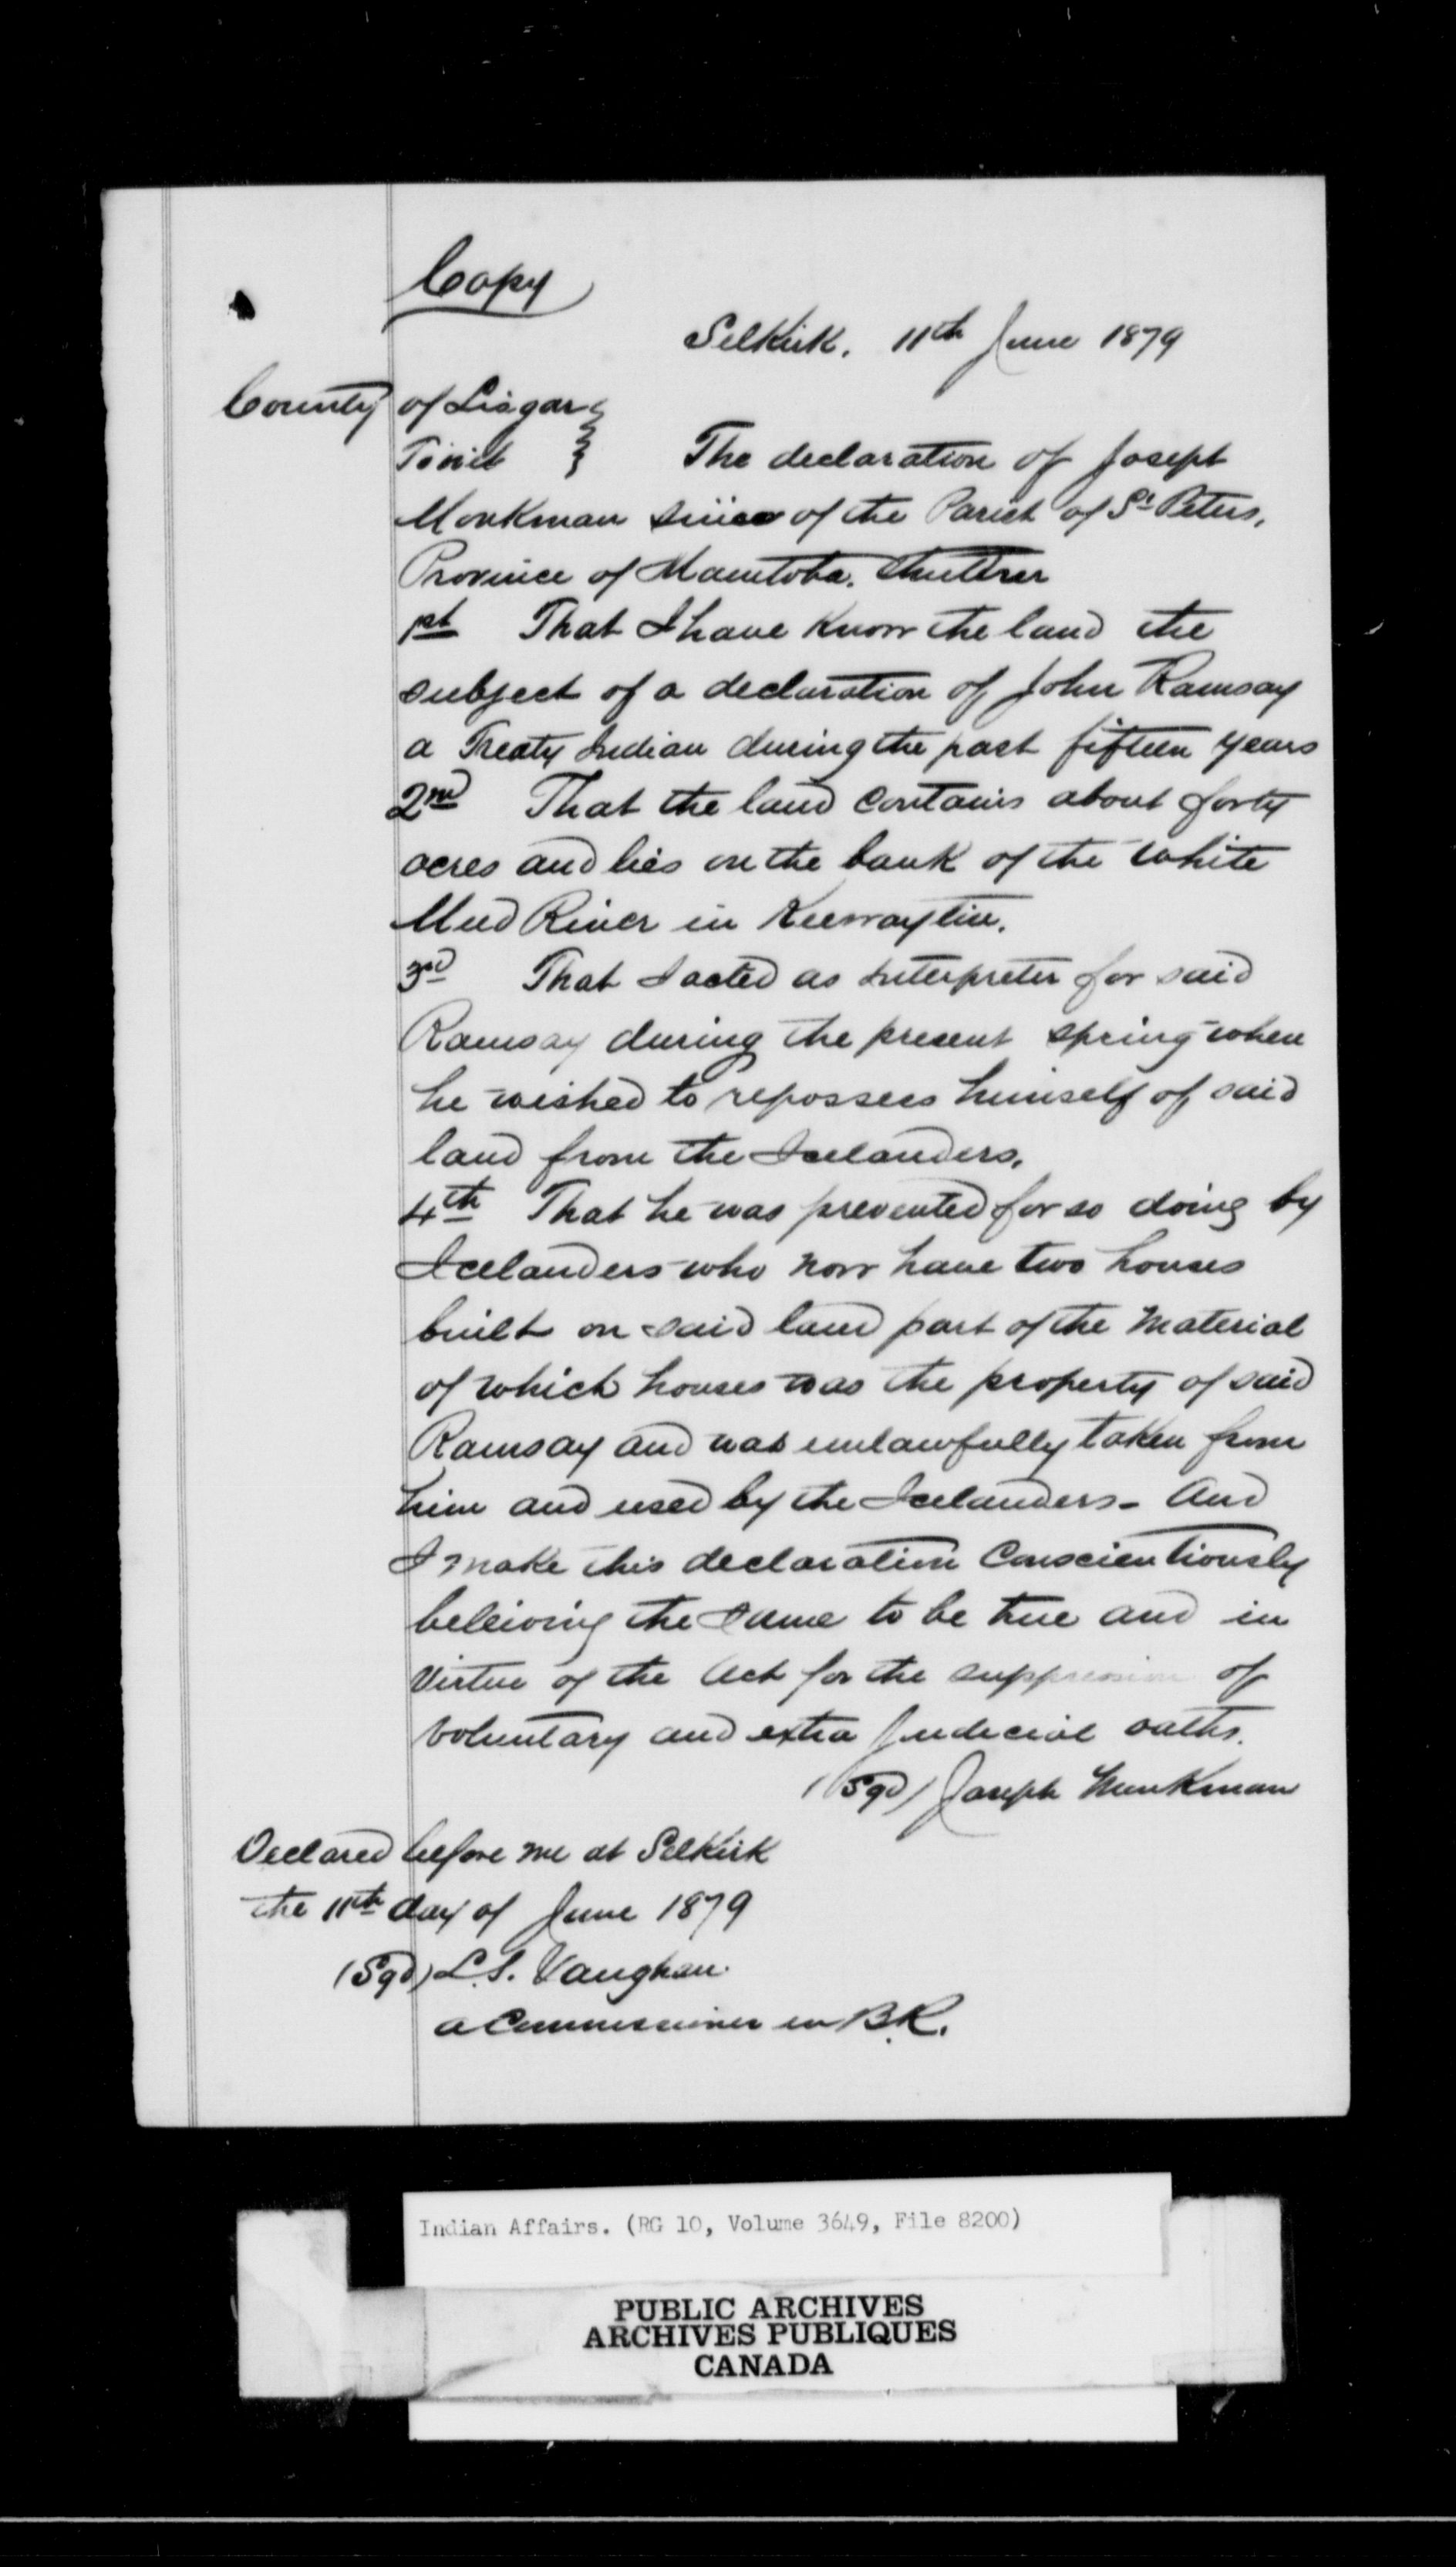 Copy
Selkirk. 11th June 1879
County of Lisgar
To wit } The declaration of Joseph
Monkman of the Parish of St Peters,
Province of Manitoba.
1st That I have know the land the
subject of a declaration of John Ramsay
a Treaty Indian during the past fifteen years
2nd That the land contains about forty
acres and lies on the bank of the White
Mud River in Keewaytin.
3rd That I acted as Interpreter for said
Ramsay during the present spring when
he wished to repossess himself of said
land from the Icelanders.
4th That he was prevented for so doing by
Icelanders who now have two houses
built on said land part of the material
of which houses was the property of said
Ramsay and was unlawfully taken from
him and used by the Icelanders - And
I make this declaration Conscientiously
beleiving the same to be true and in
Virtue of the Act for the suppression of
voluntary and extra Judicial oaths.
(Sgd) Joseph Munkman
Declared before me at Selkirk
the 11th day of June 1879
(Sgd) L.S. Vaughan.
a Commissioner in B.R.
Indian Affairs. (RG 10, Volume 3649, File 8200)
PUBLIC ARCHIVES
ARCHIVES PUBLIQUES
CANADA